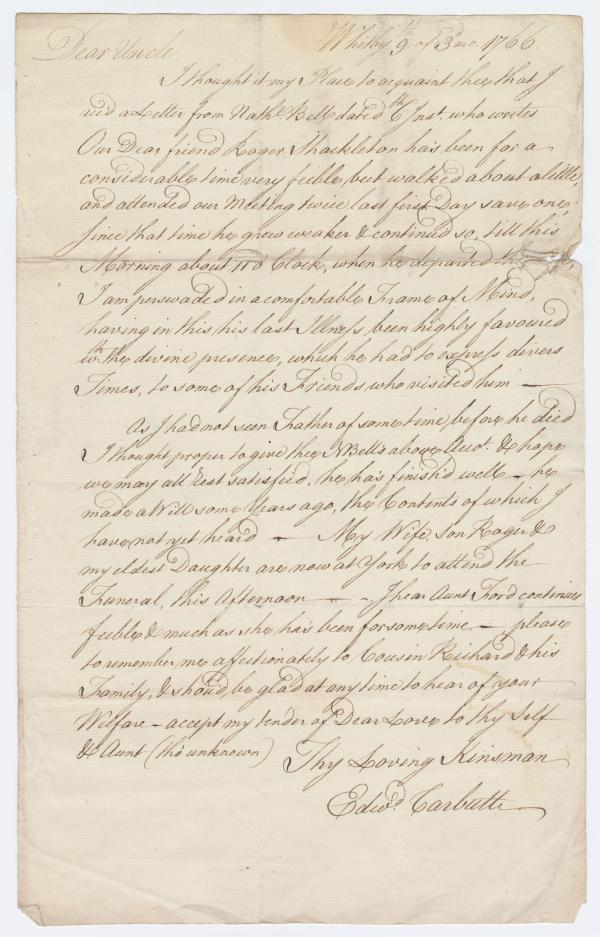 Dear Uncle. Whitby 9th of 3d mo. 1766.
I thought it my Place to acquaint thee that I
rec'd a Letter from Nathl. Bell dated 6th Inst. who writes
Our Dear friend Roger Shackleton has been for a
considerable time very feeble, but walked about a little,
and attended our Meeting twice last first Day save one,
since that time he grew weaker & continued so, till this
Morning about 11 o'Clock, when he departed
I am perswaded in a comfortable Frame of Mind,
having in this his last Illness been highly favoured
wth the divine presence, which he had to express divers
Times, to some of his Friends who visited him —
As I had not seen Father of some time before he died
I thought proper to give thee N Bell's above Acct. & hope
we may all rest satisfied, he has finish'd well — he
made a Will some Years ago, the Contents of which I
have not yet heard — My Wife, son Roger &
my eldest Daughter are now at York to attend the
Funeral, this Afternoon — I hear Aunt Ford continues
feeble & much as she has been for some time — please
to remember me affectionately to Cousin Richard & his
Family, & shou'd be glad at any time to hear of your
Welfare — accept my tender of Dear Love to thy Self
& Aunt (tho' unknown) Thy Loving Kinsman
Edwd. Carbutt